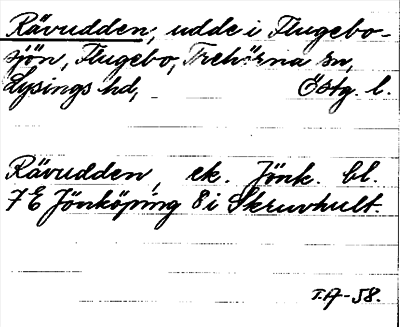 Rävudden, udde i Flugebo-
sjön, Flugebo, Trehörna sn,
Lysings hd, Östg. l.
Rävudden, ek. Jönk. bl.
7E Jönköping 8i Skruvhult.
I.A-58.